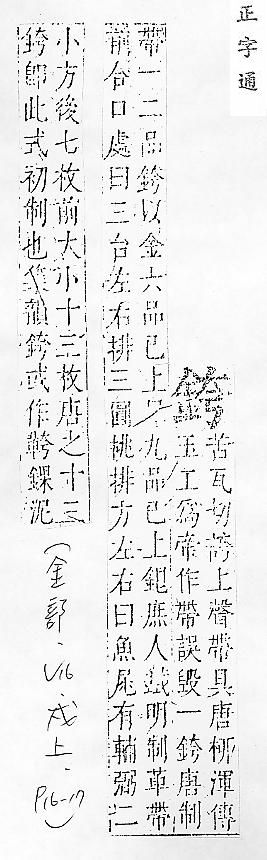 正字通
銙
苦瓦切誇上聲帶具唐柳渾傳
玉工爲帝作帶誤毀一銙唐制
帶一二品銙以金六品已上犀九品已上銀庶人鐵明制革帶
前合口處曰三台左右排三圓桃排方左右曰魚尾有輔弼二
小方後七枚前大小十三枚唐之十三
銙卽此式初制也集韻銙或作錁泥
(金部·V16·戌上·P16-17)